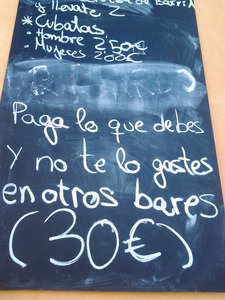 de Barril
y llevate 2
* Cubatas
· Hombre 2,50€
· Mujeres 2,00€
Paga lo que debes
Y no te lo gastes
en otros bares
(30€)